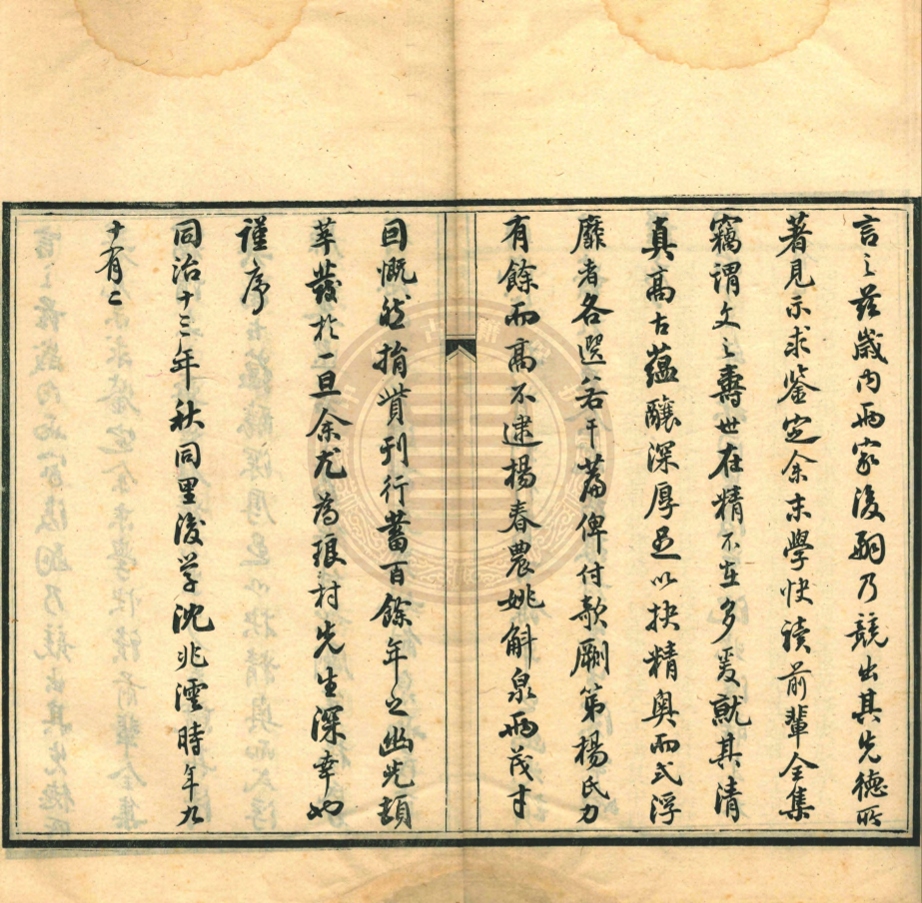 言之茲歲內兩家後嗣乃競出其先德所
著見示求鑒定余末學快讀前輩全集
竊謂文之壽世在精不在多爰就其清
真高古蘊釀深厚足以抉精奧而式浮
靡者各選若干篇俾付歌劂第楊氏力
有餘而高不逮楊春農姚斛泉兩茂才
回慨然捐貲刊行蓄百餘年之幽光頓
莘發於一旦余尤為琅村先生深幸也
謹序
同治十三年秋同里後学沈兆澐時年九
十有二